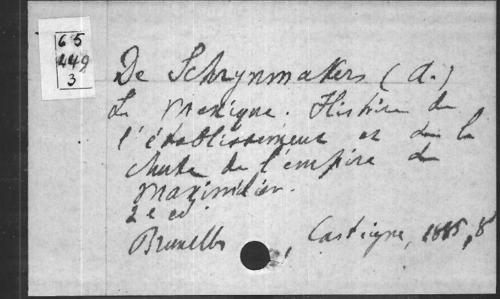 65
449
3
De Schrynmakers (A.)
Le Mexique. Histoire de
l'établissement et de la
chute de l'empire de
Maximilien.
2e ed.
Bruxelles, Castaigne, 1885, 8°